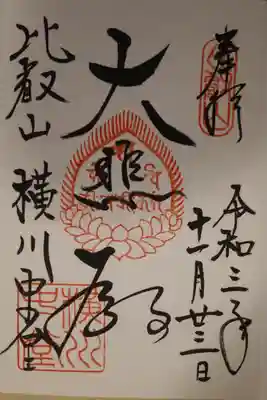 奉拝
令和三年
十一月廿三日
大悲殿
比叡山 横川中堂
横川中堂